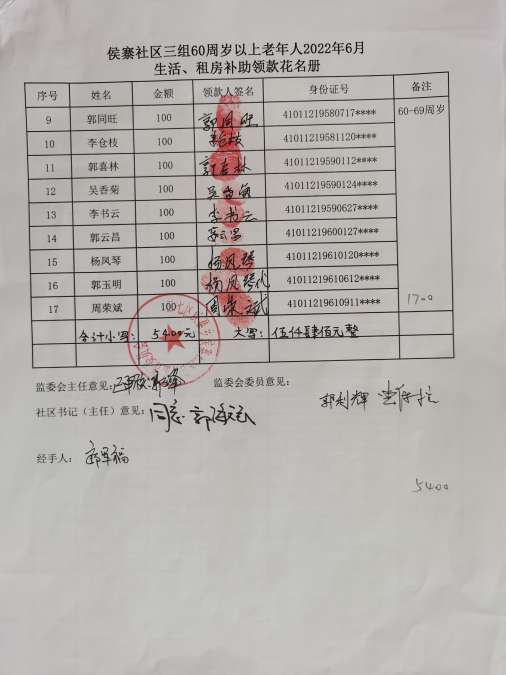 侯寨社区三组60周岁以上老年人2022年6月
生活、租房补助领款花名册
序号 姓名 金额 领款人签名 身份证号 备注
9 郭同旺 100 郭同旺 41011219580717**** 60-69周岁
10 李仓枝 100 李仓枝 41011219581120****
11 郭喜林 100 郭喜林 41011219590112****
12 吴香菊 100 吴香菊 41011219590124****
13 李书云 100 李书云 41011219590627****
14 郭云昌 100 郭云昌 41011219600127****
15 杨凤琴 100 杨凤琴 41011219610120****
16 郭玉明 100 杨凤琴代 41011219610612****
17 周荣斌 100 周荣斌 41011219610911**** 1700
合计小写: 5400元 大写: 伍仟肆佰元整
监委会主任意见: 监委会委员意见: 郭利辉
社区书记(主任)意见: 同意
经手人:
5400